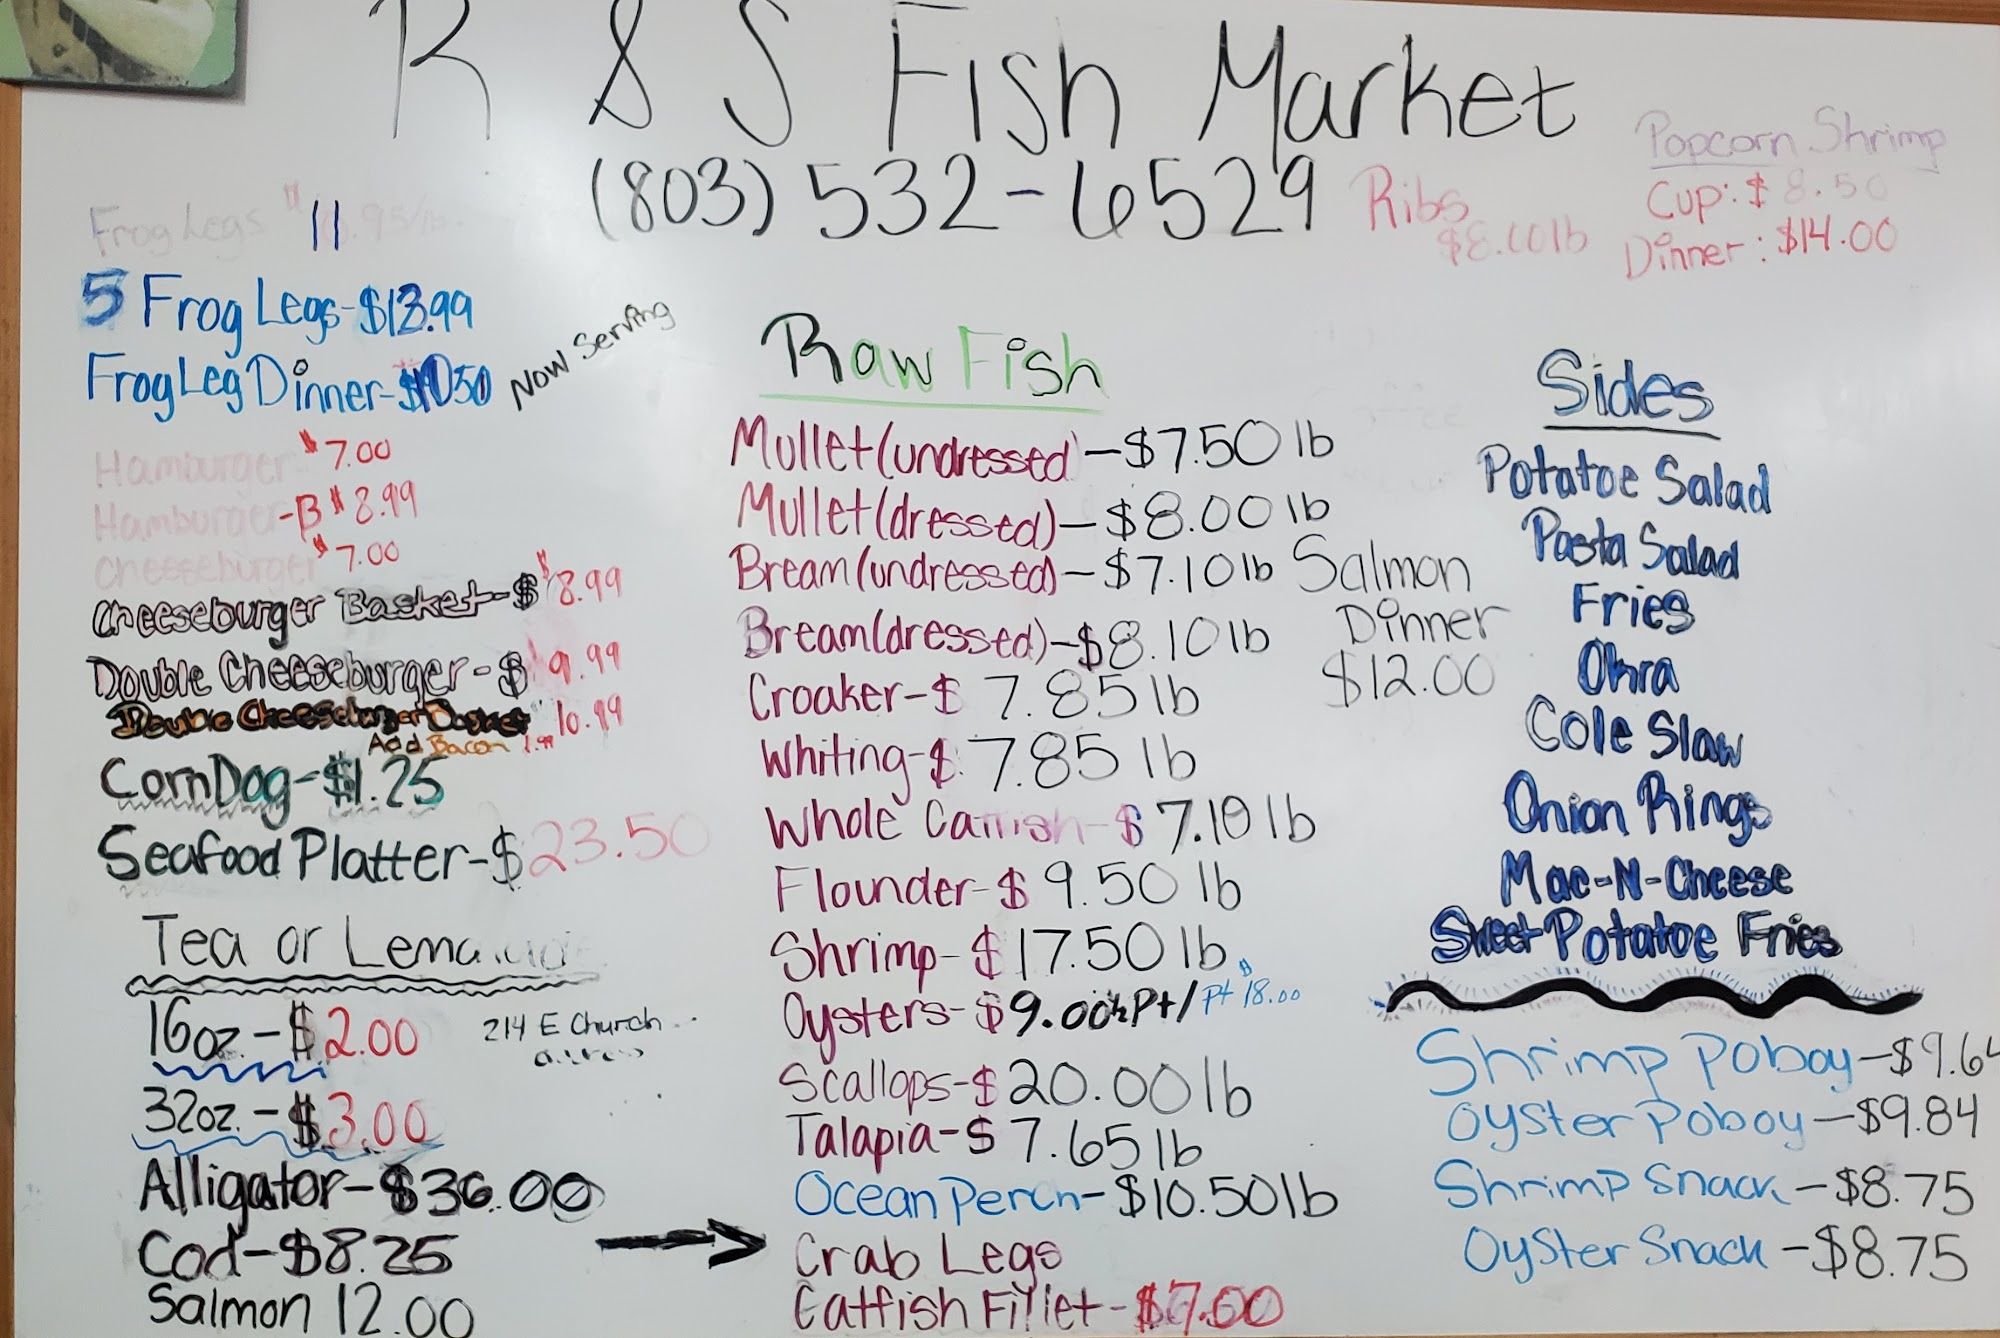 R & S Fish Market
(803) 532-6529
Popcorn Shrimp
Cup: $8.50
Dinner: $14.00
Ribs
Frog Legs $11
5 Frog Legs-$13.99
Frog Leg Dinner-
Now Serving
Hamburger $7.00
Hamburger-B $8.99
Cheeseburger $7.00
Cheeseburger Basket-$8.99
Double Cheeseburger-$9.99
Double Cheeseburger Basket 10.99
Add Bacon 1.99
Corn Dog-$1.25
Seafood Platter-$23.50
Tea or
16oz.-$2.00
32oz.-$3.00
214 E Church
Alligator-$36.00
Cod-$8.25
Salmon 12.00
Raw Fish
Mullet(undressed)-$7.50 lb
Mullet(dressed)-$8.00 lb
Bream(undressed)-$7.10 lb
Bream(dressed)-$8.10 lb
Croaker-$7.85 lb
Whiting-$7.85 lb
Whole Catfish-$7.10 lb
Flounder-$9.50 lb
Shrimp-$17.50 lb
Oysters-$9.00 Pt/ Pt $18.00
Scallops-$20.00 lb
Talapia-$7.65 lb
Ocean Perch-$10.50 lb
Crab Legs
Catfish Fillet-$7.00
Salmon
Dinner
$12.00
Sides
Potatoe Salad
Pasta Salad
Fries
Okra
Cole Slaw
Onion Rings
Mac-N-Cheese
Sweet Potatoe Fries
Shrimp Poboy-$9.64
Oyster Poboy-$9.84
Shrimp Snack-$8.75
Oyster Snack-$8.75